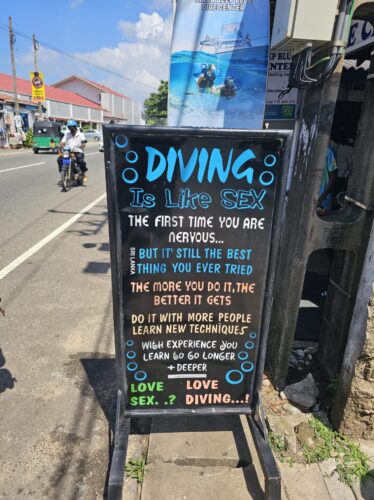 DEEP BLUE
DIVE CENTER
DIVING
Is Like SEX
THE FIRST TIME YOU ARE
NERVOUS...
SRI LANKA
BUT IT'S STILL THE BEST
THING YOU EVER TRIED
THE MORE YOU DO IT, THE
BETTER IT GETS
DO IT WITH MORE PEOPLE
LEARN NEW TECHNIQUES
WIGH EXPERIENCE YOU
LEARN GO GO LONGER
+ DEEPER
LOVE LOVE
SEX. .? DIVING...!